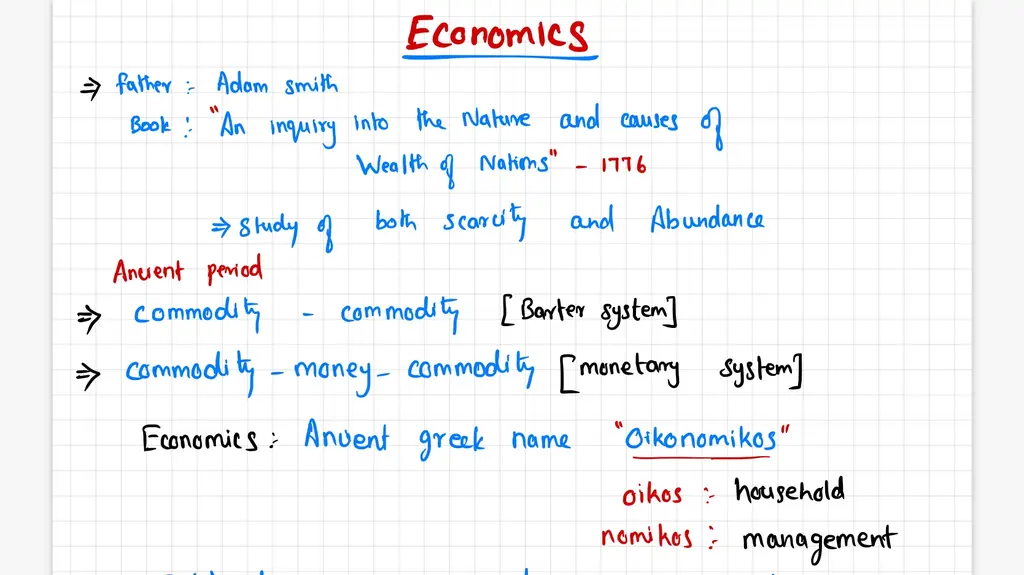 Economics
⇒ father :- Adam smith
Book :- "An inquiry into the Nature and causes of
Wealth of Nations" - 1776
⇒ study of both scarcity and Abundance
Ancient period
⇒ commodity - commodity [Barter system]
⇒ commodity - money - commodity [monetary system]
Economics :- Ancient greek name "Oikonomikos"
oikos :- household
nomikos :- management